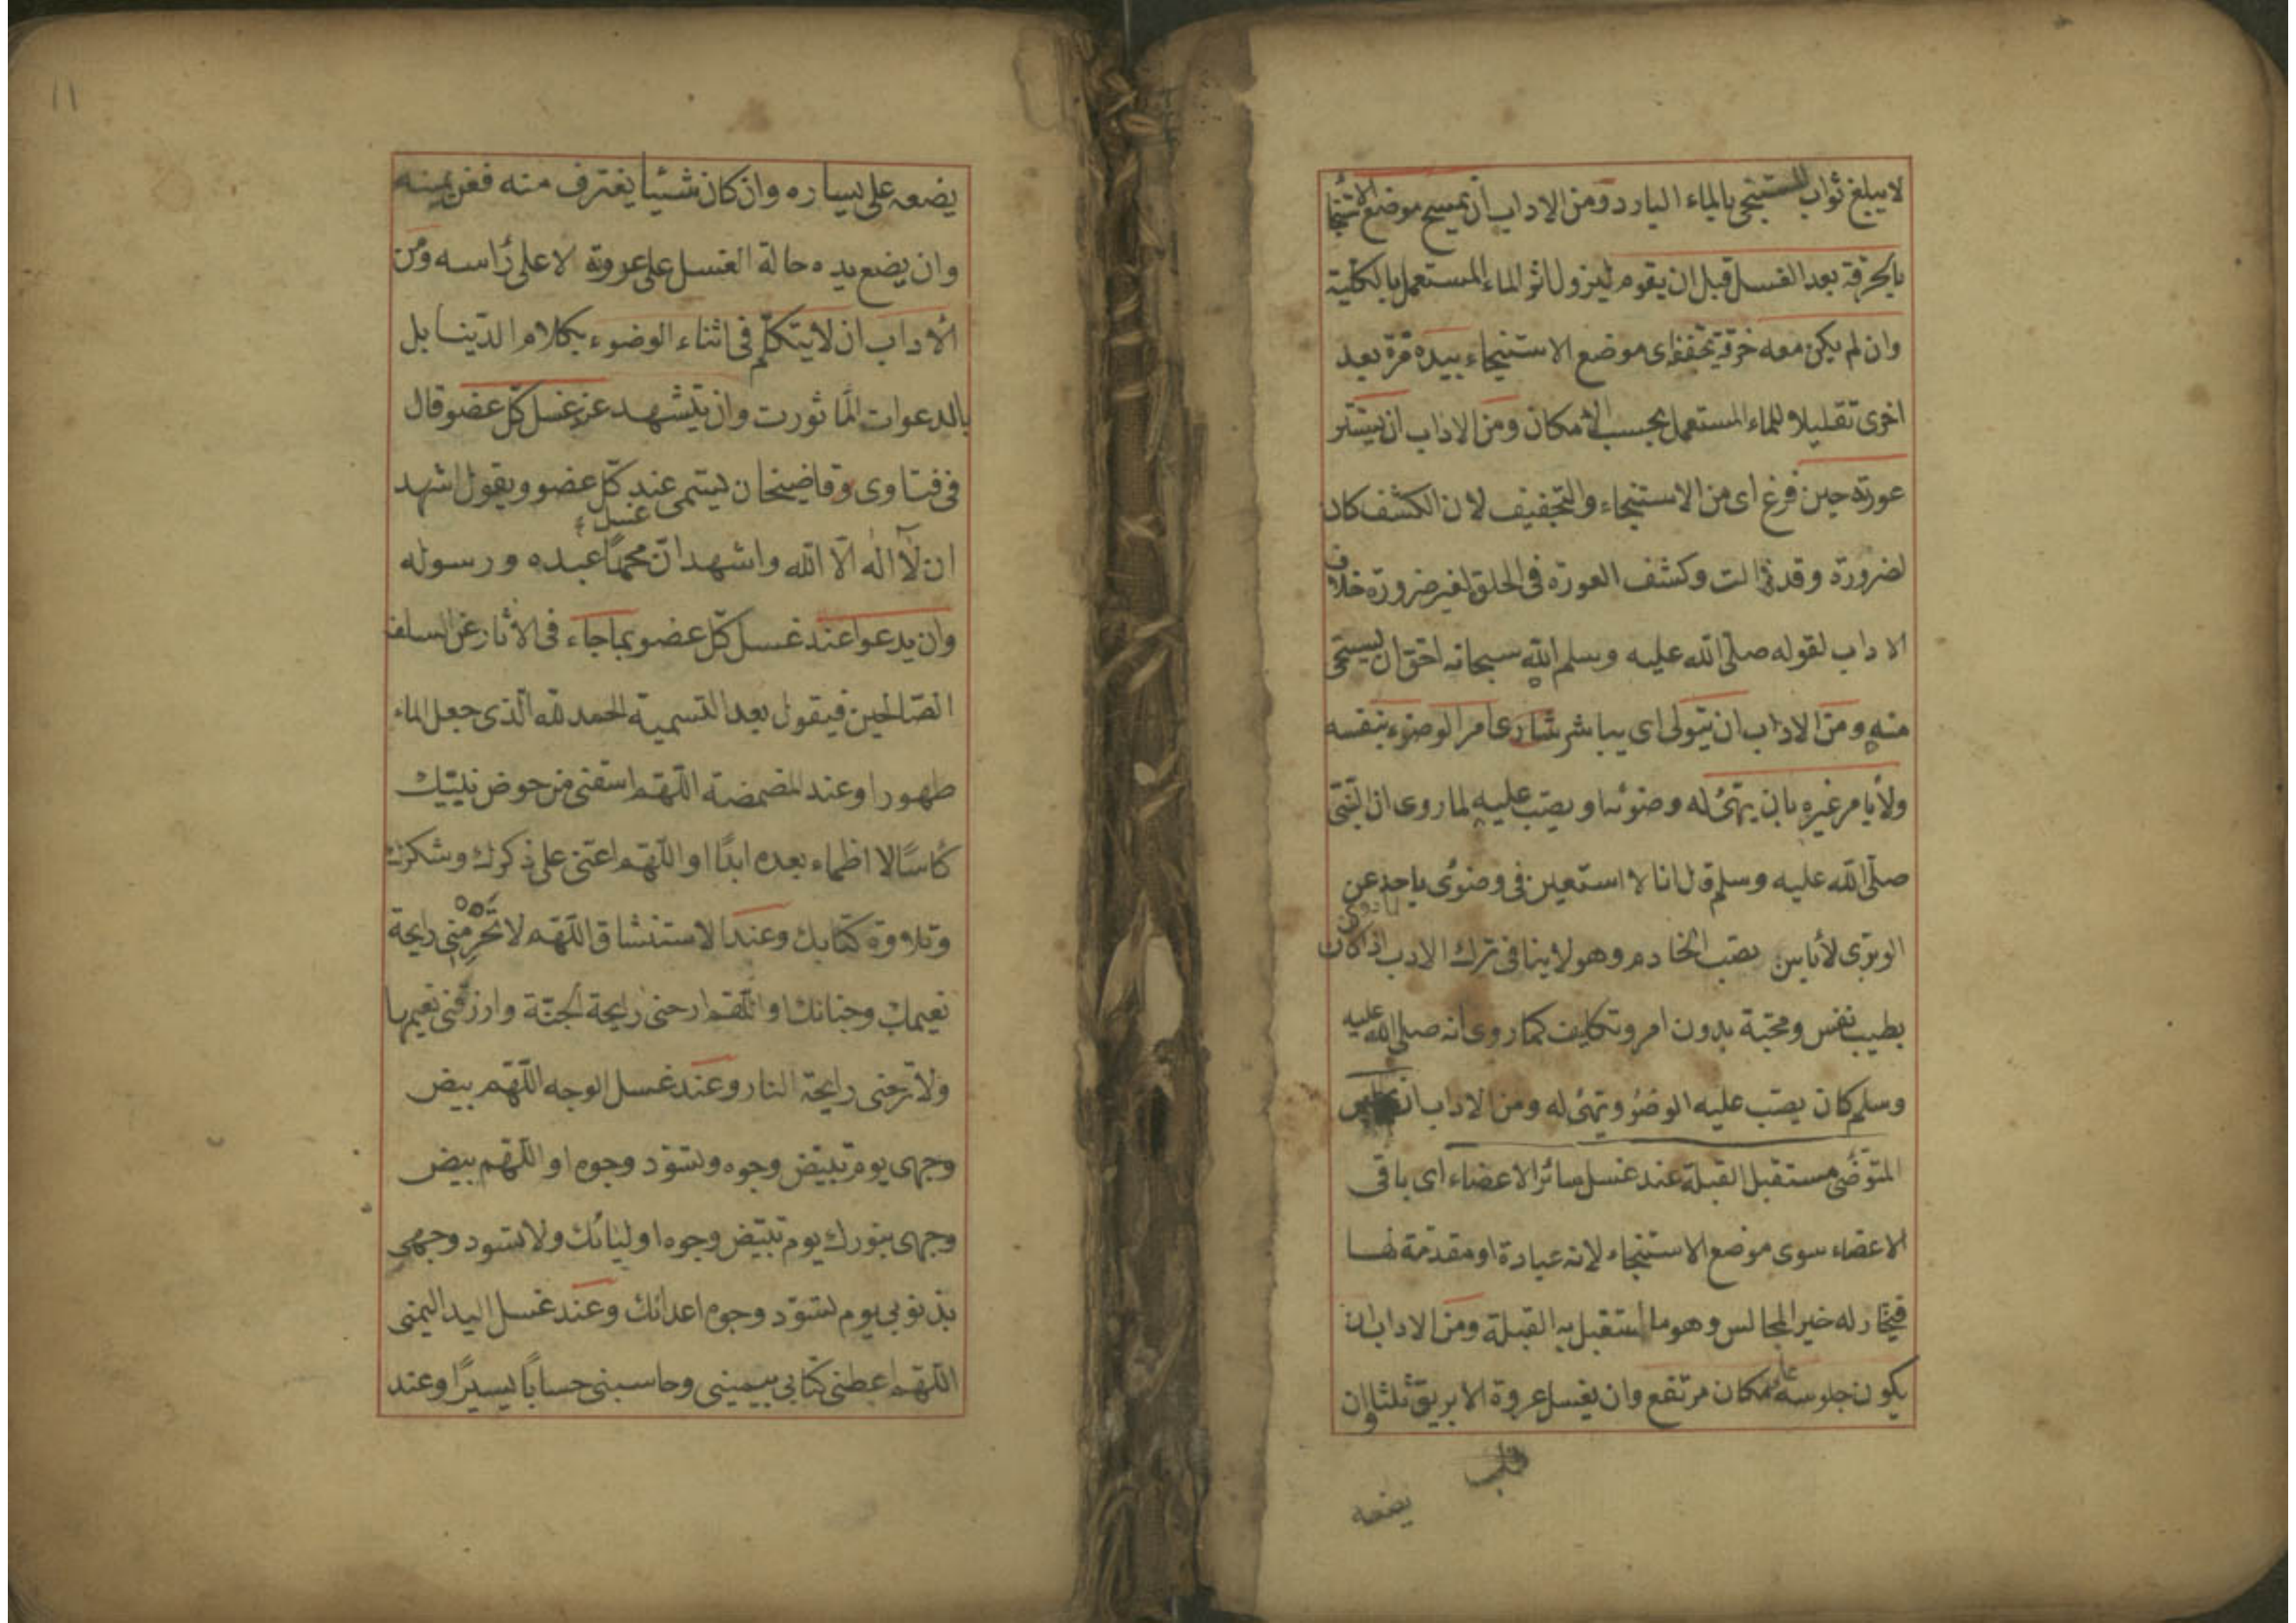 لا يبلغ ثواب المستنجى بالماء البارد ومن الاداب ان يمسح موضع الاستنجا
بالخرقة بعد الغسل قبل ان يقوم ليزول اثر الماء المستعمل بالكلية
وان لم يكن معه خرقة يجففه اى موضع الاستنجاء بيده مرة بعد
اخرى تقليلا للماء المستعمل بحسب الامكان ومن الاداب ان يستر
عورته حين فرغ اى من الاستنجاء والتجفيف لان الكشف كان
لضرورة وقد زالت وكشف العورة فى الخلق لغير ضرورة خلاف
الاداب لقوله صلى الله عليه وسلم الله سبحانه احق ان يستحى
منه ومن الاداب ان يتولى اى يباشر شارع امر الوضوء بنفسه
ولا يأمر غيره بان يهئ له وضوئه او يصب عليه لما روى ان النبى
صلى الله عليه وسلم قال انا لا استعين فى وضوئى باحد عن
الوبرى لا بأس بصب الخادم وهو لا ينافى ترك الادب اذا كان
بطيب نفس ومحبة بدون امر وتكليف كما روى انه صلى الله عليه
وسلم كان يصب عليه الوضؤ ويهئ له ومن الاداب ان يجلس
المتوضى مستقبل القبلة عند غسل سائر الاعضاء اى باقى
الاعضاء سوى موضع الاستنجاء لانه عبادة او مقدمة لها
فيختار له خير المجالس وهو ما استقبل به القبلة ومن الاداب ان
يكون جلوسه على مكان مرتفع وان يغسل عروة الابريق ثلثا وان
يضعه
١١
يضعه على يساره وان كان شيئا يغترف منه فعن يمينه
وان يضع يده حالة الغسل على عروته لا على رأسه ومن
الاداب ان لا يتكلم فى اثناء الوضوء بكلام الدنيا بل
بالدعوات المأثورت وان يتشهد عند غسل كل عضو قال
فى فتاوى وقاضيخان يسمى عند كل عضو ويقول اشهد
غسل
ان لا اله الا الله واشهد ان محمدا عبده ورسوله
وان يدعوا عند غسل كل عضو بما جاء فى الاثار عن السلف
الصالحين فيقول بعد التسمية الحمد لله الذى جعل الماء
طهورا وعند المضمضة اللهم اسقنى من حوض نبيك
كأسا لا اظماء بعده ابدا او اللهم اعنى على ذكرك وشكرك
وتلاوة كتابك وعند الاستنشاق اللهم لا تحرمنى رايحة
نعيمك وجنانك او اللهم ارحنى رايحة الجنة وارزقنى نعيمها
ولا ترحنى رايحة النار وعند غسل الوجه اللهم بيض
وجهى يوم تبيض وجوه وتسود وجوه او اللهم بيض
وجهى بنورك يوم تبيض وجوه اوليائك ولا تسود وجهى
بذنوبى يوم تسود وجوه اعدائك وعند غسل اليد اليمنى
اللهم اعطنى كتابى بيمينى وحاسبنى حسابا يسيرا وعند